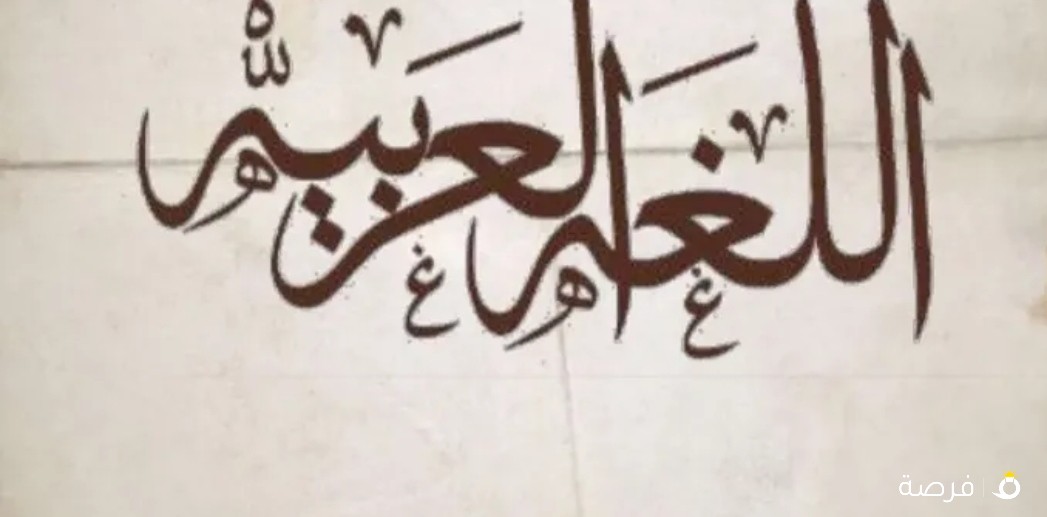 اللغه العربيه
فرصة